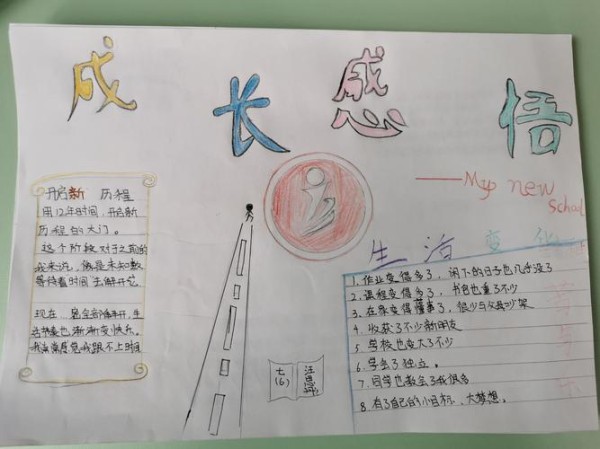 成长感悟
——My new
School
开启新 历程
用12年时间，开启新
历程的大门。
这个阶段对于之前的
我来说，就是未知数
等待着时间去解开它
现在，
我总感觉我跟不上时间
七(6)
生活变化
1. 作业变得多了，闲下的日子也几乎没了
2. 课程变得多了，书包也重了不少
3. 在家变得懂事了，很少与父母吵架
4. 收获了不少新朋友
5. 学校也变大了不少
6. 学会了独立。
7. 同学也教会了我很多
8. 有了自己的小目标，大梦想。